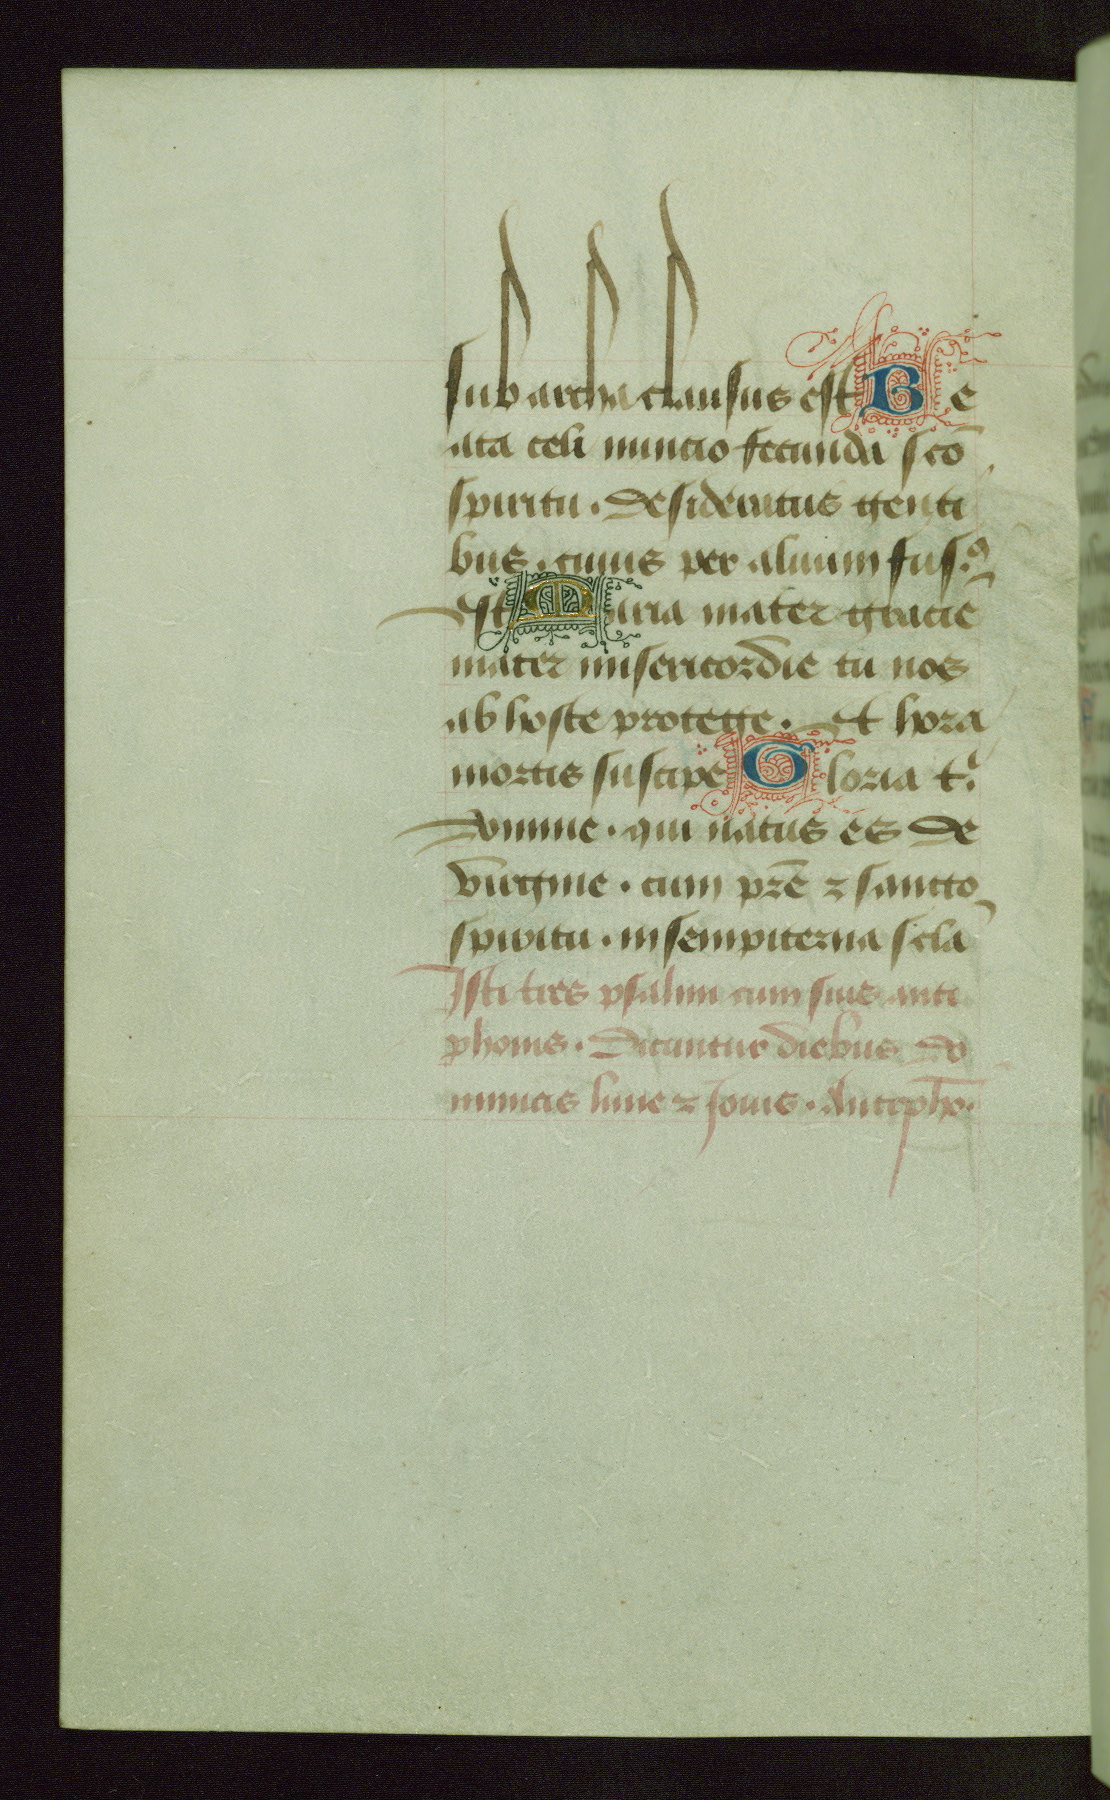 sub archa clausus est Be
ata celi nuncio fecunda sc̄o
spiritu . Desideratus genti
bus . cuius per aluum fusꝰ
est Maria mater gracie
mater misericordie tu nos
ab hoste protege . Et hora
mortis suscipe Gloria t.ͥ
domine . qui natus es de
virgine . cum pr̄e ⁊ sancto
spiritu . in sempiterna sc̄la
Isti tres psalmi cum suis anti
phonis . Dicantur diebus do
minicis lune ⁊ Jouis . Antiph̄o.